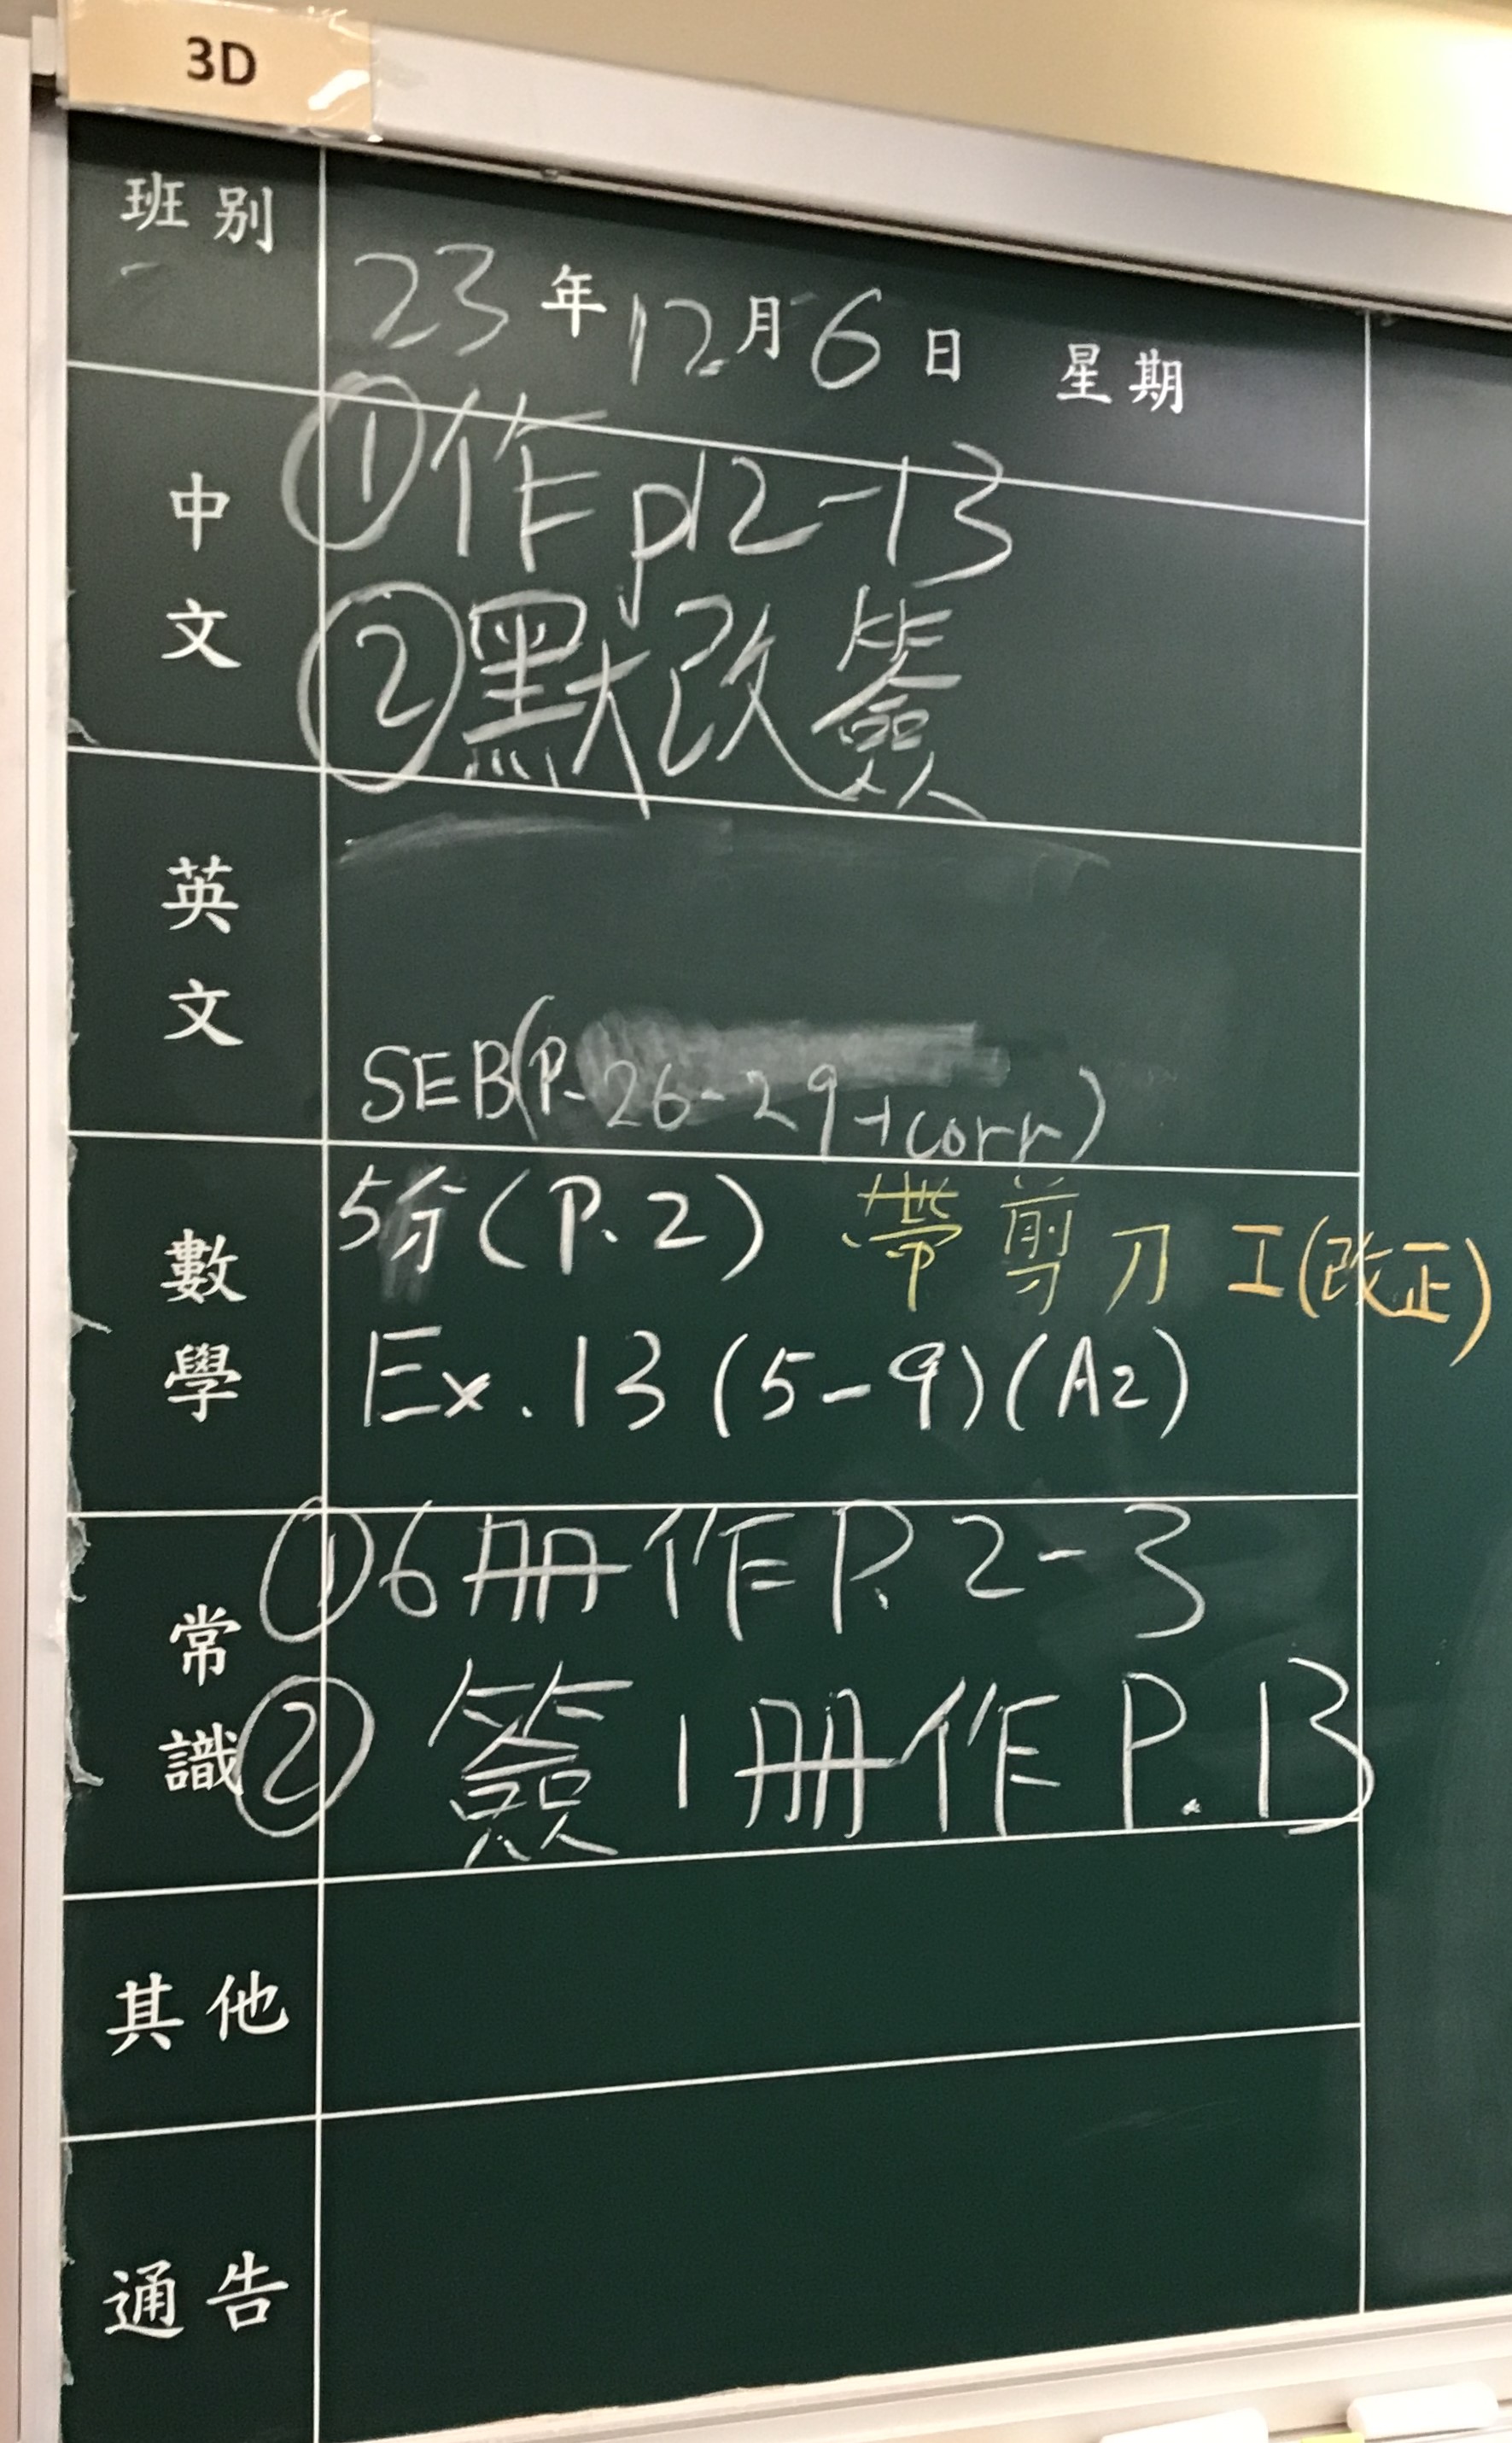 3D
班別
23年12月6日 星期
中文
①作p12-13
②默改簽
英文
SEB(P.26-29+corr)
數學
5分(P.2) 帶剪刀 工(改正)
Ex.13(5-9)(A2)
常識
①6册作P.2-3
②簽1册作P.13
其他
通告